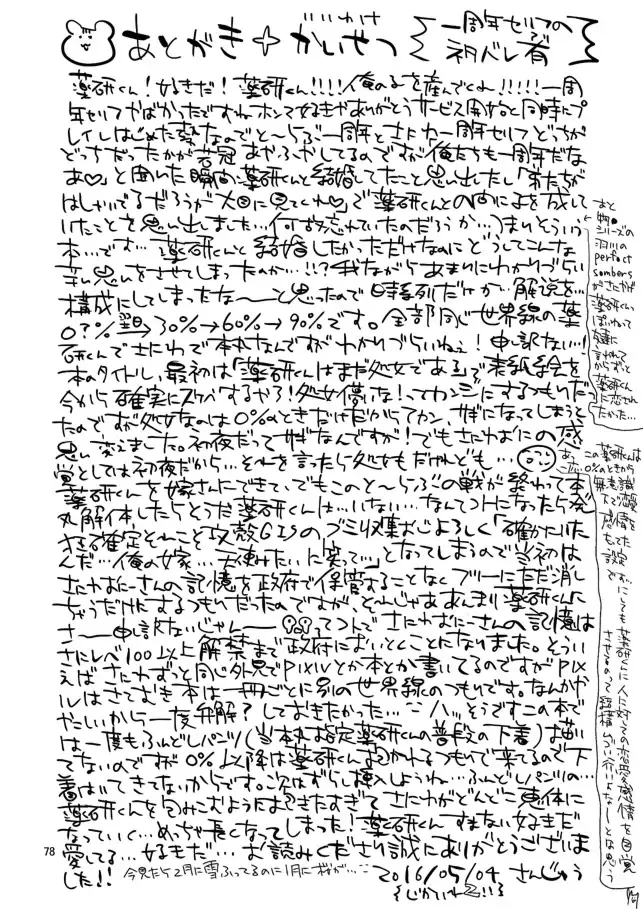 あとがき+かいせつ いいわけ
一周年セリフの
ネタバレ有
薬研くん!好きだ!薬研くん!!!!俺の子を産んでくれ!!!!!一周
年セリフやばかったですねホンマ好きやありがとうサービス開始と同時にプ
レイしはじめた察なのでと〜らぶ一周年とさにわ一周年セリフどっちが
どっちだったかが若干あやふやしてるのですが俺たちも一周年だな
あ♡」と聞いた瞬間、薬研くんと結婚してたこと思い出したし「弟たちが
はしゃいでるだろうが大目に見てくれ♡」で薬研くんとの間に子を成して
いたことを思い出しました…何故忘れていたのだろうか…)まいそういう
本…です…薬研くんと結婚したかっただけなのにどうしてこんな
辛い思いをさせてしまったのか…!!?我ながらあまりにわかりづらい
構成にしてしまったな〜〜と思ったので時系列だけか…解説を…
0?%→30%→60%→90%です。全部同じ世界線の薬
研くんでさにわで本丸なんですがわかりづらいねぇ!申し訳ない!
本のタイトル、最初は「薬研くんはまだ処女である」で表紙絵を
今から確実にスケベするやろ!処女停な!ってカンジにするつもりだっ
たのですが処女なのは0%のときだけだからアカン サギになってしまうと
思い変えました。初夜だってサギなんですが!でもさにわおにの感
覚としては初夜だから…それを言ったら処女もだけれども…
薬研くんを嫁さんにできていてもこのと〜らぶの戦が終わって本
丸解体したらそうだ薬研くんは…いない…なんてコトになったら発
狂する確定それこそ攻殻GISのゴミ収集おじよろしく「確かにいた
んだ…俺の嫁…天使みたいに笑って…」となってしまうので当初は
さにわおにーさんの記憶を政府で保管することなくフツーにただ消し
ちゃうだけにするつもりだったのですが、それじゃああんまり薬研くんに
さ――申し訳ないじゃん――ってコトでさにわおにーさんの記憶は
さにレベ100以上解禁まで政府においとくことになりました。そうい
えばさにわずっと同じ外見でPixivとか本とか書いてるのですがPix
ivはさておき本は一冊ごとに別の世界線のつもりです。なんかや
やこしいから一度弁解?しておきたかった…ハッそうですこの本で
は一度もふんどしパンツ(当本丸指定薬研くんの普段の下着)描い
てないのですが0%以降は薬研くん抱かれるつもりで来てるので下
着はいてきてないからです。次はずらし挿入しようね…ふんどしパンツの…
薬研くんを包みこむように抱きたすぎてさにわがどんどこ恵体に
なっていく…めっちゃ長くなってしまった!薬研くんすまない好きだ
愛してる…好きだ…お読みくださり誠にありがとうございま
した!!
今見たら2月に雪ふってるのに1月に桜が…
2016/05/04 さんじゅう
あと
物●
シリーズの
羽川の
perfect
sombers
がさにわが
薬研くんに
言われて
からずっと
薬研くん
に恋され
たかった…
あっ、この薬研くんは
0%のときから
無意識
下で恋愛
感情を
もってた
設定
です…にしても薬研くんに人に対しての恋愛感情を自覚
させるのって結構つらい行いよなーとは思う
78